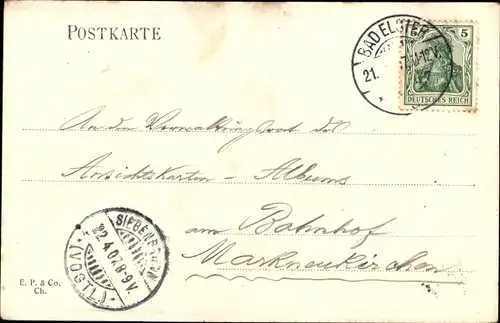 POSTKARTE
BAD ELSTER
21.
5
DEUTSCHES REICH
An den Verwaltungsrat des
Ansichtskarten - Albums
am Bahnhof
Markneukirchen
SIEBENBRUNN
22.4.07.8-9V.
(VOGTL.)
E. P. & Co.
Ch.